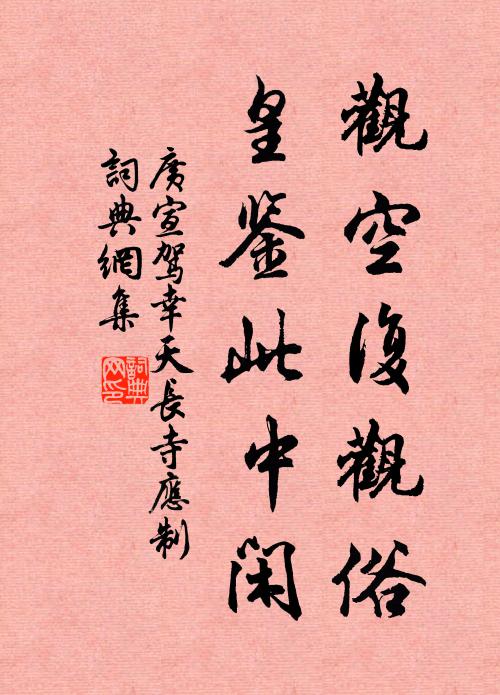 觀空復觀俗
皇鉴此中閑
廣宣駕幸天長寺應制
詞典網集
詞典網印